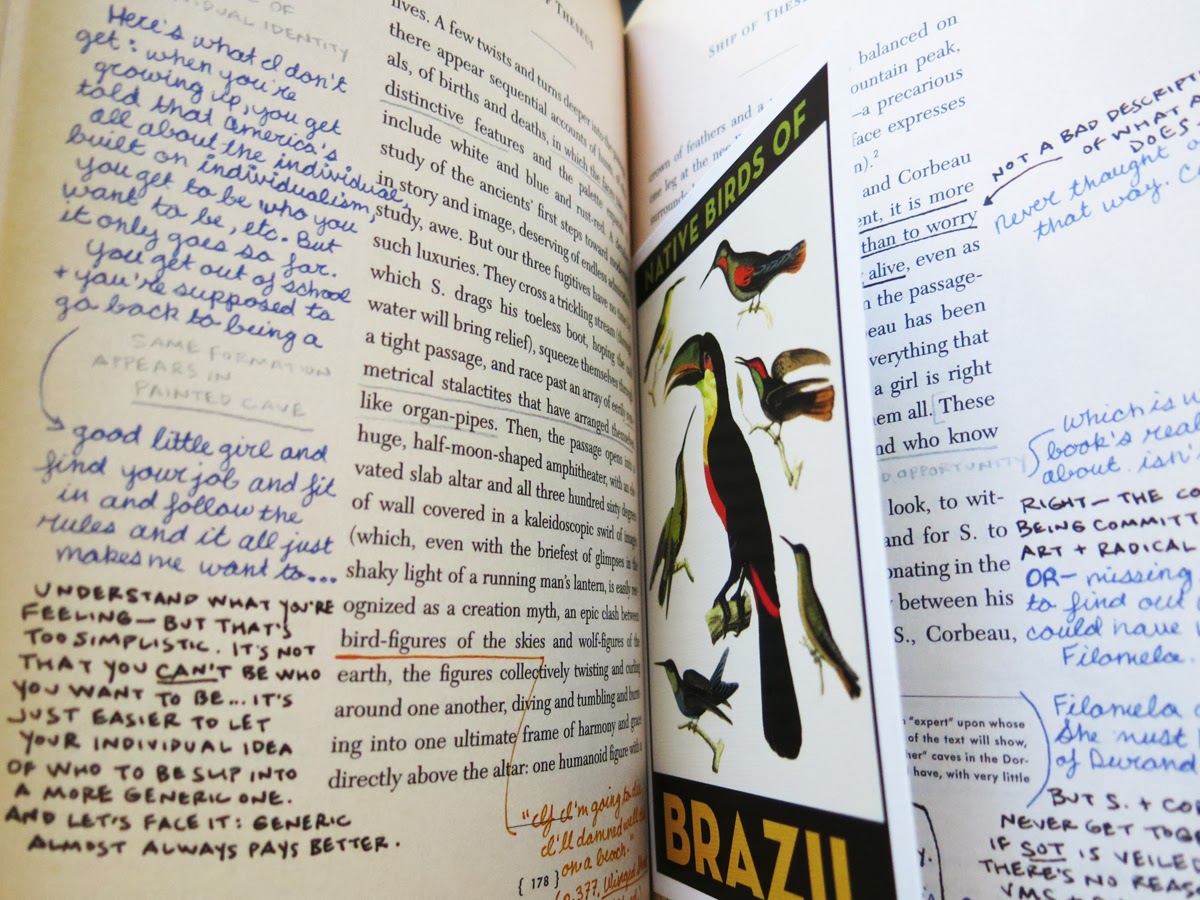 OF
INDIVIDUAL IDENTITY
Here's what I don't
get: when you're
growing up, you get
told that America's
all about the individual,
built on individualism,
you get to be who you
want to be, etc. But
it only goes so far.
You get out of school
+ you're supposed to
go back to being a
SAME FORMATION
APPEARS IN
PAINTED CAVE
good little girl and
find your job and fit
in and follow the
rules and it all just
makes me want to...
UNDERSTAND WHAT YOU'RE
FEELING— BUT THAT'S
TOO SIMPLISTIC. IT'S NOT
THAT YOU CAN'T BE WHO
YOU WANT TO BE... IT'S
JUST EASIER TO LET
YOUR INDIVIDUAL IDEA
OF WHO TO BE SLIP INTO
A MORE GENERIC ONE.
AND LET'S FACE IT: GENERIC
ALMOST ALWAYS PAYS BETTER.
OF THESEUS
lives. A few twists and turns deeper into the
there appear sequential accounts of
als, of births and deaths, in which the
distinctive features and the palette
include white and blue and rust-red. A
study of the ancients' first steps toward
in story and image, deserving of endless
study, awe. But our three fugitives have no
such luxuries. They cross a trickling stream
which S. drags his toeless boot, hoping the
water will bring relief), squeeze themselves through
a tight passage, and race past an array of eerily
metrical stalactites that have arranged themselves
like organ-pipes. Then, the passage opens into a
huge, half-moon-shaped amphitheater, with an
vated slab altar and all three hundred sixty degrees
of wall covered in a kaleidoscopic swirl of images
(which, even with the briefest of glimpses in the
shaky light of a running man's lantern, is easily
ognized as a creation myth, an epic clash between
bird-figures of the skies and wolf-figures of the
earth, the figures collectively twisting and curling
around one another, diving and tumbling and
ing into one ultimate frame of harmony and grace
directly above the altar: one humanoid figure with a
"If I'm going to die,
I'll damned well
on a beach."
{ 178 }
SHIP OF THESEUS
crown of feathers and a
one leg at the
NATIVE BIRDS OF
BRAZIL
balanced on
ountain peak,
—a precarious
face expresses
n).²
and Corbeau
ent, it is more
than to worry
alive, even as
n the passage-
eau has been
verything that
a girl is right
em all. These
nd who know
look, to wit-
and for S. to
onating in the
between his
S., Corbeau,
"expert" upon whose
of the text will show,
her" caves in the Dor-
have, with very little
NOT A BAD DESCRIPT
OF WHAT A
DOES.
Never thought o
that way.
OPPORTUNITY
which is
book's real
about. isn't
RIGHT— THE CO
BEING COMMITT
ART + RADICAL
OR— missing
to find out
could have
Filomela.
Filomela
She must
of Durand
BUT S. + CO
NEVER GET TOGE
IF SOT IS VEILED
THERE'S NO REAS
VMS +